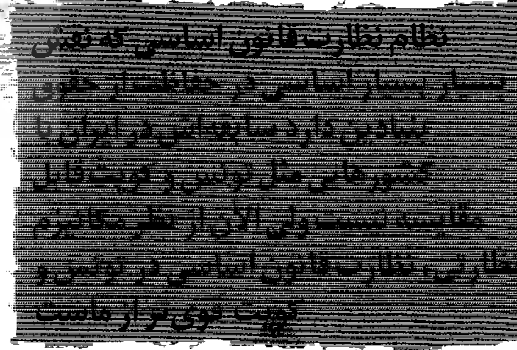 نظام نظارت قانون اساسی که نقش
بسیار بسیار اساسی در حفاظت از حقوق
بنیادین دارد سابقه‌اش در ایران با
کشورهایی مثل تونس و کویت قابل
مقایسه نیست ولی الان از نظر مکانیزم
نظارتی، نظارت قانون اساسی در تونس و
کویت قوی‌تر از ماست